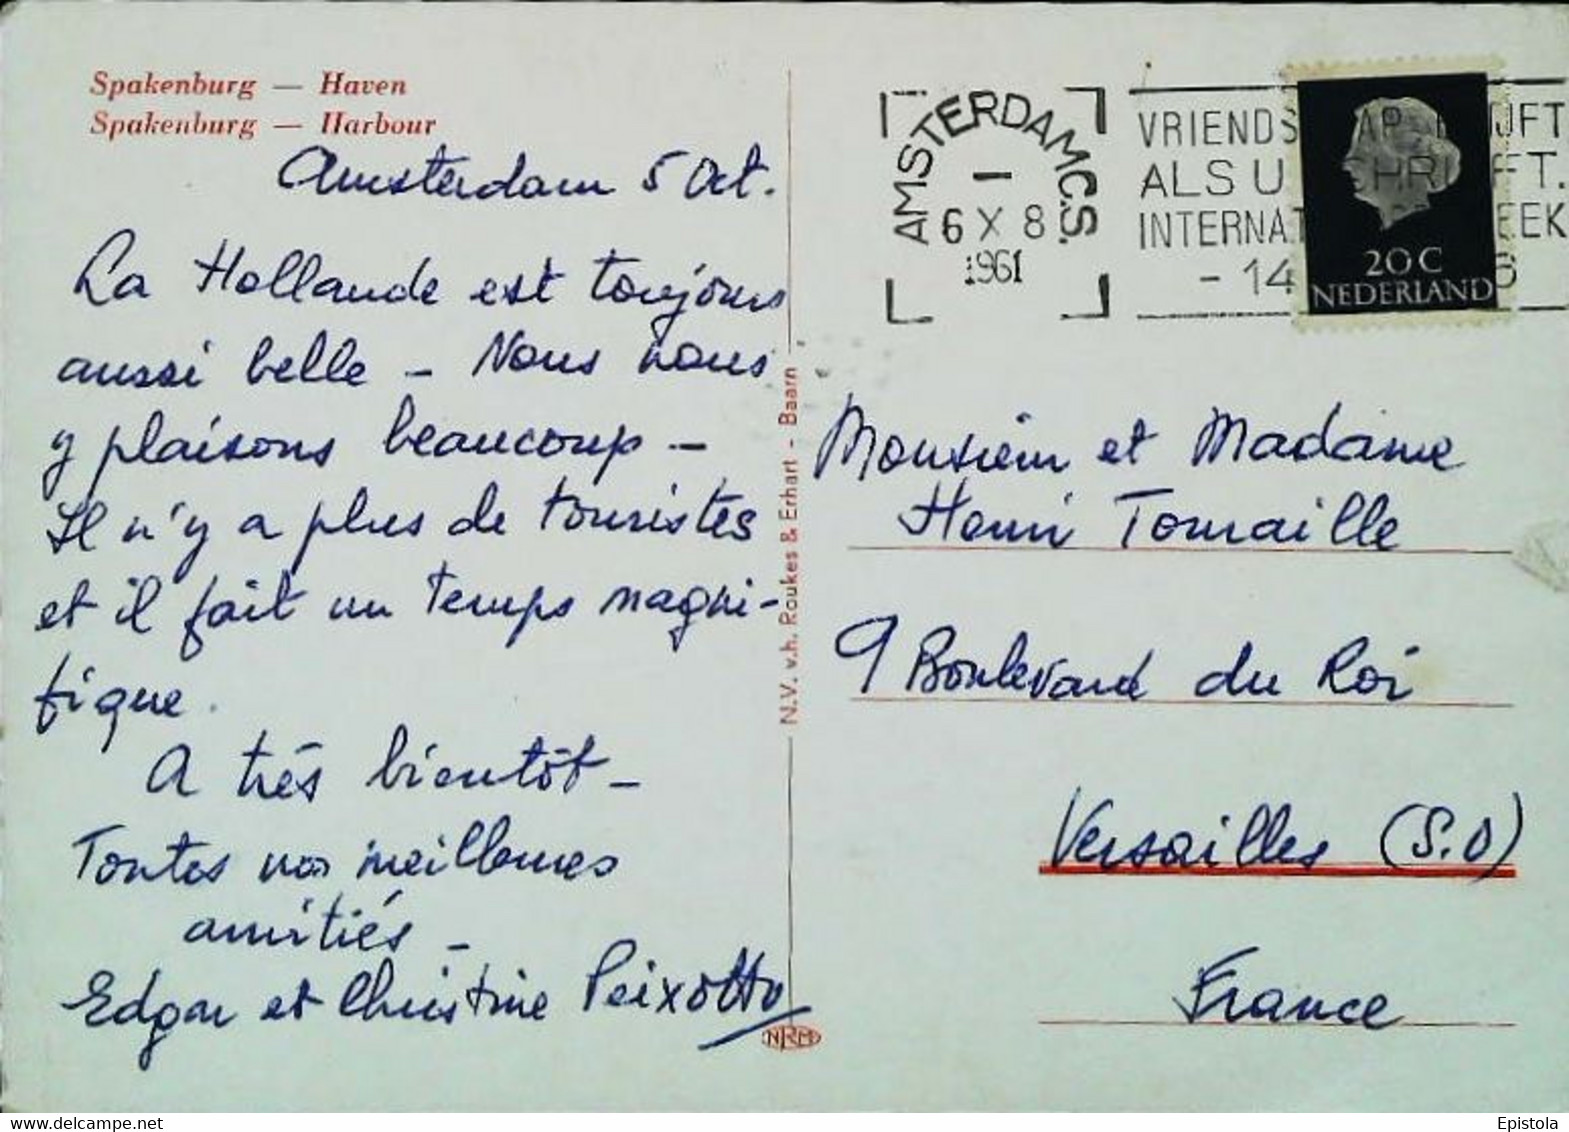 Spakenburg — Haven
Spakenburg — Harbour
Amsterdam 5 Oct.
La Hollande est toujours
aussi belle - Nous nous
y plaisons beaucoup -
Il n'y a plus de touristes
et il fait un temps magni-
fique.
A très bientôt -
Toutes nos meilleures
amitiés -
Edgar et Christine Peixotto
N.V. v.h. Roukes & Erhart - Baarn
NRM
AMSTERDAM C.S.
1
6 X 8
1961
VRIENDS AP IJFT
ALS U SCHRI FT.
INTERNAT EEK
- 14
20 C
NEDERLAND
Monsieur et Madame
Henri Tournaille
9 Boulevard du Roi
Versailles (S.O)
France
Epistola